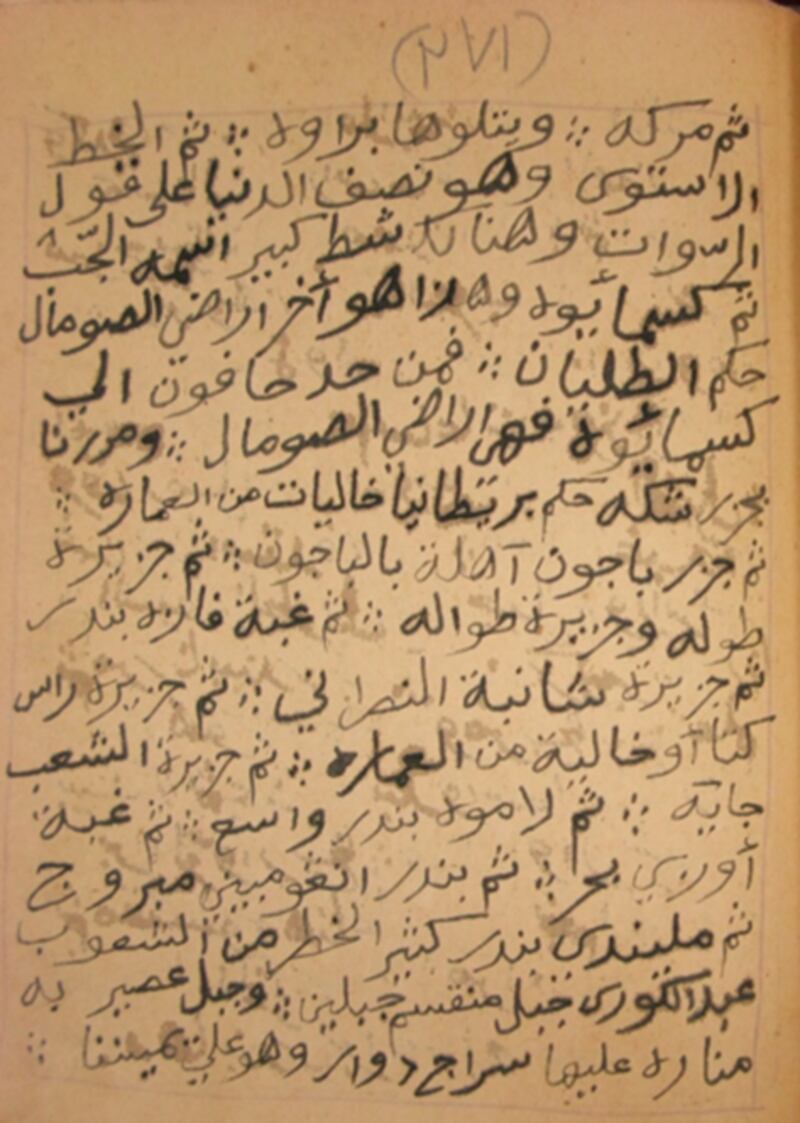 (٢٧١)
ثم مركه :: ويتلوها براوه :: ثم الخط
الاستوى وهو نصف الدنيا على قول
الروات وهناك شط كبير اسمه الجب
ثم كسمايوه وهذا هو أخر اراضي الصومال
حكم الطليان :: فمن حد حافون الي
كسمايوه فهي اراضي الصومال :: ومررنا
بجزر شكه حكم بريطانيا خاليات من العماره ::
ثم جزر باجون آهلة بالباجون :: ثم جزيرة
طوله وجزيرة طواله :: ثم غبة فازه بندر
ثم جزيرة شانبة النصراني :: ثم جزيرة راس
كتاآو خالية من العماره :: ثم جزيرة الشعب
جايه :: ثم لاموه بندر واسع :: ثم غبة
أوزي بحر :: ثم بندر انغوميني مبروج
ثم مليندي بندر كثير الخطر من الشعوب
عبدالكوري جبل منقسم جبلين :: وجبل عصير به
مناره عليها سراج دوار وهو علي يميننا ::